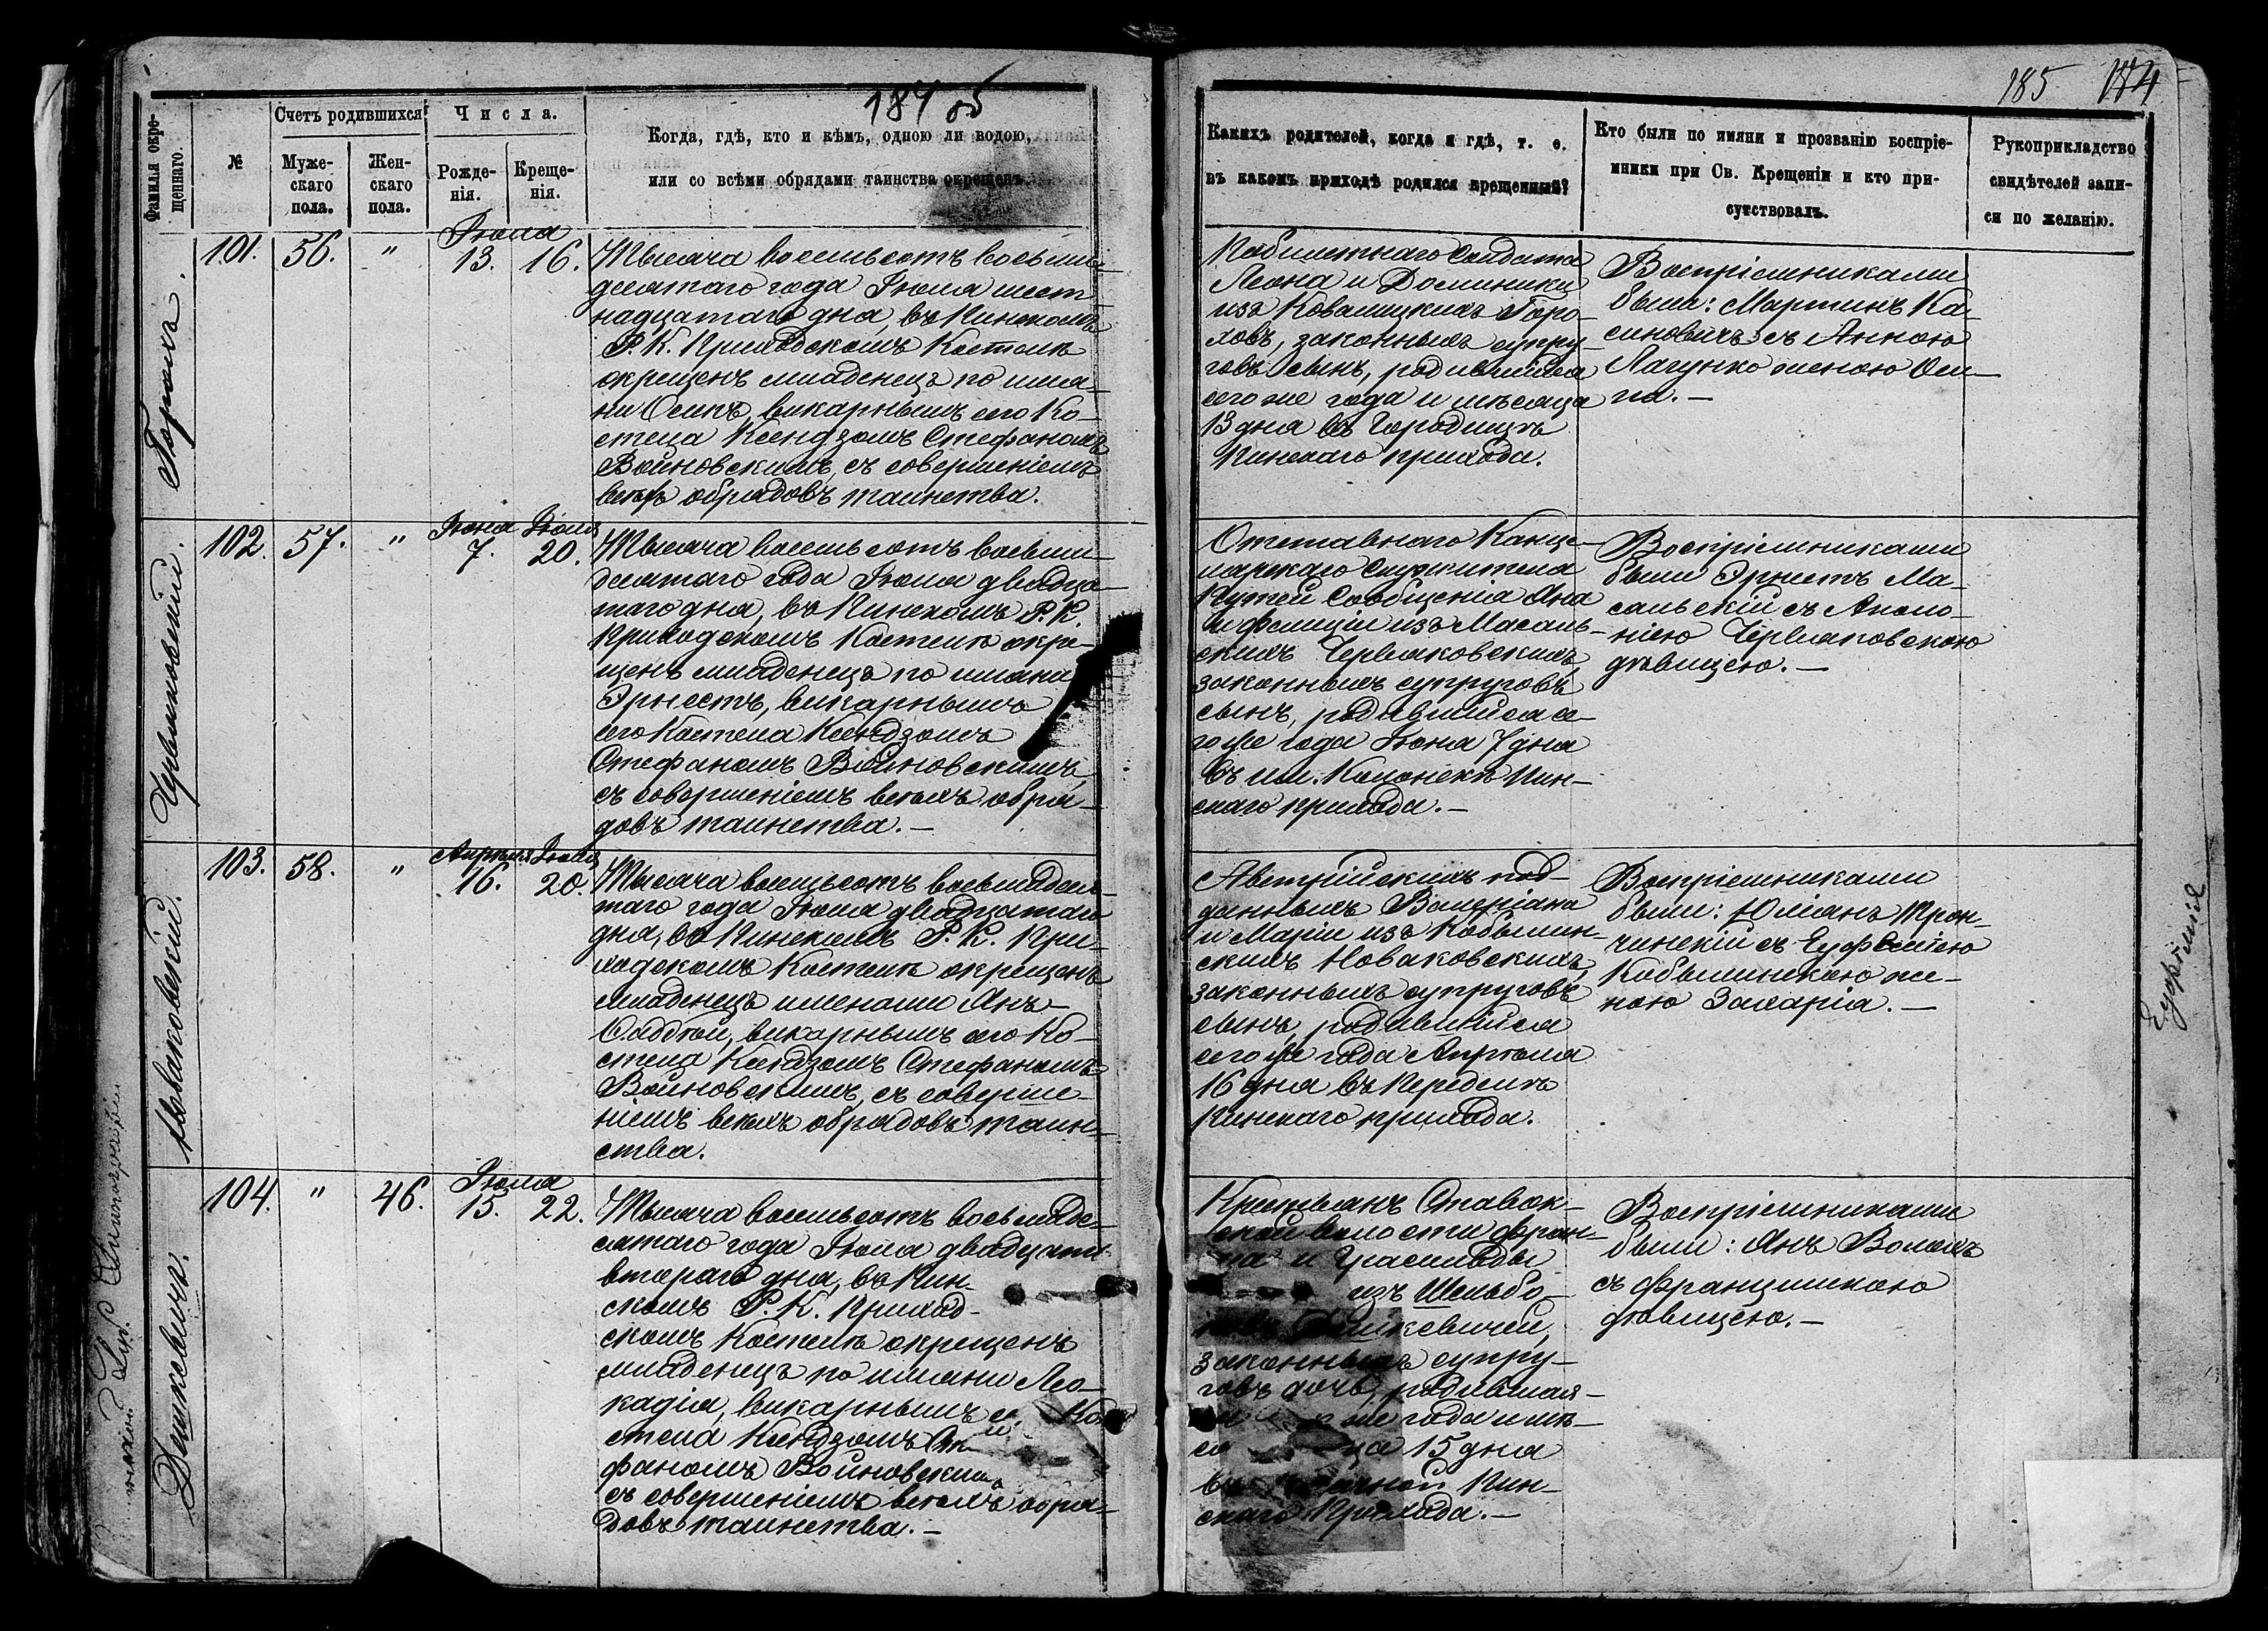 184 об
185 174
Фамилія окрещеннаго.
№
Счетъ родившихся
Мужескаго пола.
Женскаго пола.
Числа.
Рожденія.
Крещенія.
Когда, гдѣ, кто и кѣмъ, одною ли водою,
или со всѣми обрядами таинства окрещенъ.
Какихъ родителей, когда и гдѣ, т. е.
въ какомъ приходѣ родился крещенный?
Кто были по имяни и прозванію воспріе-
мники при Св. Крещеніи и кто при-
сутствовалъ.
Рукоприкладство
свидѣтелей запи-
си по желанію.
Горохъ.
101. 56. " Іюля 13. 16.
Тысяча восемьсотъ восьми-
десятаго года Іюля шест-
надцатаго дня, въ Пинскомъ
Р. К. Приходскомъ Костелѣ
окрещенъ младенецъ по имя-
ни Осипъ, викарнымъ сего Ко-
стела Ксендзомъ Стефаномъ
Войновскимъ, съ совершеніемъ
всѣхъ обрядовъ таинства.
Побилетнаго Солдата
Леона и Доминики
изъ Ковалицкихъ Горо-
ховъ, законныхъ супру-
говъ сынъ, родившійся
сего же года и мѣсяца
13 дня въ Городищѣ
Пинскаго прихода.
Воспріемниками
были: Мартинъ Ка-
синовичъ съ Анною
Лагунко женою Оси-
па. —
Червяковскій.
102. 57. " Іюня 7. Іюля 20.
Тысяча восемьсотъ восьми-
десятаго года Іюля двадца-
таго дня, въ Пинскомъ Р. К.
Приходскомъ Костелѣ окре-
щенъ младенецъ по имяни
Эрнестъ, викарнымъ
сего Костела Ксендзомъ
Стефаномъ Войновскимъ,
съ совершеніемъ всѣхъ обря-
довъ таинства. —
Отставнаго Канце-
лярскаго Служителя
Путей Сообщенія Яна
и Фелиціи изъ Масаль-
скихъ Червяковскихъ,
законныхъ супруговъ
сынъ, родившійся се-
го же года Іюня 7 дня
въ им. Колонскѣ Пин-
скаго прихода. —
Воспріемниками
были Эрнестъ Ма-
сальскій съ Аполо-
ніею Червяковскою
дѣвицею. —
Новаковскій.
103. 58. " Апрѣля 16. Іюля 20.
Тысяча восемьсотъ восьмидеся-
таго года Іюля двадцатаго
дня, въ Пинскомъ Р. К. При-
ходскомъ Костелѣ окрещенъ
младенецъ именами Янъ-
Фаддей, викарнымъ сего Ко-
стела Ксендзомъ Стефаномъ
Войновскимъ, съ соверше-
ніемъ всѣхъ обрядовъ таин-
ства.
Австрійскихъ под-
данныхъ Валеріана
и Маріи изъ Кобылин-
скихъ Новаковскихъ,
законныхъ супруговъ
сынъ, родившійся
сего же года Апрѣля
16 дня въ Передилѣ
Пинскаго прихода.
Воспріемниками
были: Юліанъ Трон-
чинскій съ Еуфеміею
Кобылинскою же-
ною Захарія. —
Еуфеміе
Дашкевичъ.
104. " 46. Іюля 15. 22.
Тысяча восемьсотъ восьмиде-
сятаго года Іюля двадцать
втораго дня, въ Пин-
скомъ Р. К. Приход-
скомъ Костелѣ окрещенъ
младенецъ по имяни Лео-
кадія, викарнымъ с. Ко-
стела Ксендзомъ Сте-
фаномъ Войновскимъ
съ совершеніемъ всѣхъ обря-
довъ таинства. —
Крестьянъ Ставок-
ской волости Фран-
ца и Грасильды
изъ Шельбо-
Дашкевичей,
законныхъ супру-
говъ дочь, родившая-
же года и мѣ-
15 дня
Пин-
скаго Прихода. —
Воспріемниками
были: Янъ Волохъ
съ Францишкою
дѣвицею. —